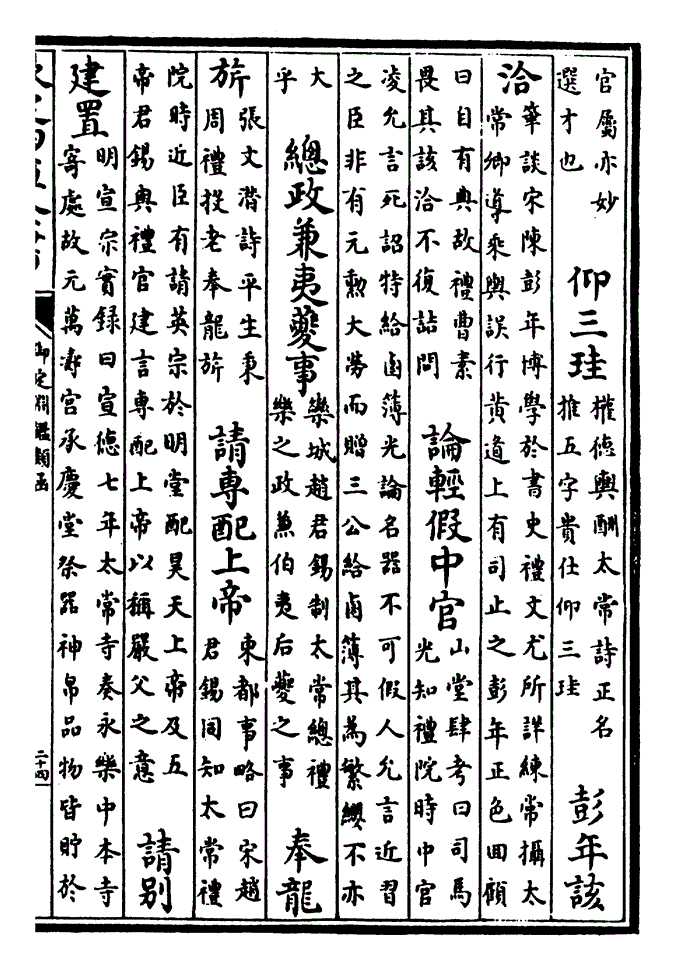 官屬亦妙
選才也
仰三珪
權德輿酬太常詩正名
推五字貴仕仰三珪
彭年該
洽
筆談宋陳彭年博學於書史禮文尤所詳練常攝太
常卿導乘輿誤行黃道上有司止之彭年正色回顧
曰自有典故禮曹素
畏其該洽不復詰問
論輕假中官
山堂肆考曰司馬
光知禮院時中官
凌允言死詔特給鹵簿光論名器不可假人允言近習
之臣非有元勳大勞而贈三公給鹵簿其為繁纓不亦
大
乎
總政兼夷夔事
欒城趙君錫制太常總禮
樂之政兼伯夷后夔之事
奉龍
旂
張文潛詩平生秉
周禮投老奉龍旂
請專配上帝
東都事略曰宋趙
君錫同知太常禮
院時近臣有請英宗於明堂配昊天上帝及五
帝君錫與禮官建言專配上帝以稱嚴父之意
請別
建置
明宣宗實錄曰宣德七年太常寺奏永樂中本寺
寄處故元萬壽宮承慶堂祭器神帛品物皆貯於
御定淵鑑類函
二十四